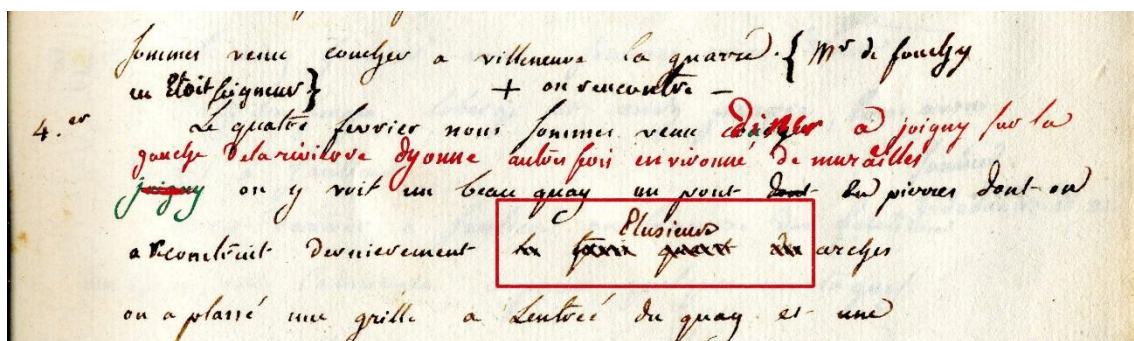 sommes venu coucher a villeneuve la quarré. { Mr de fouchy
en Etoit seigneur } + on rencontre –
4.er Le quatre fevrier nous sommes venu diner a joigny sur la
gauche de la riviere dyonne autres fois environné de murailles
joigny on y voit un beau quay un pont dont en pierres dont on
Plusieurs
a reconstruit dernierement les trois quart des arches
on a plassé une grille a Lentréé du quay et une